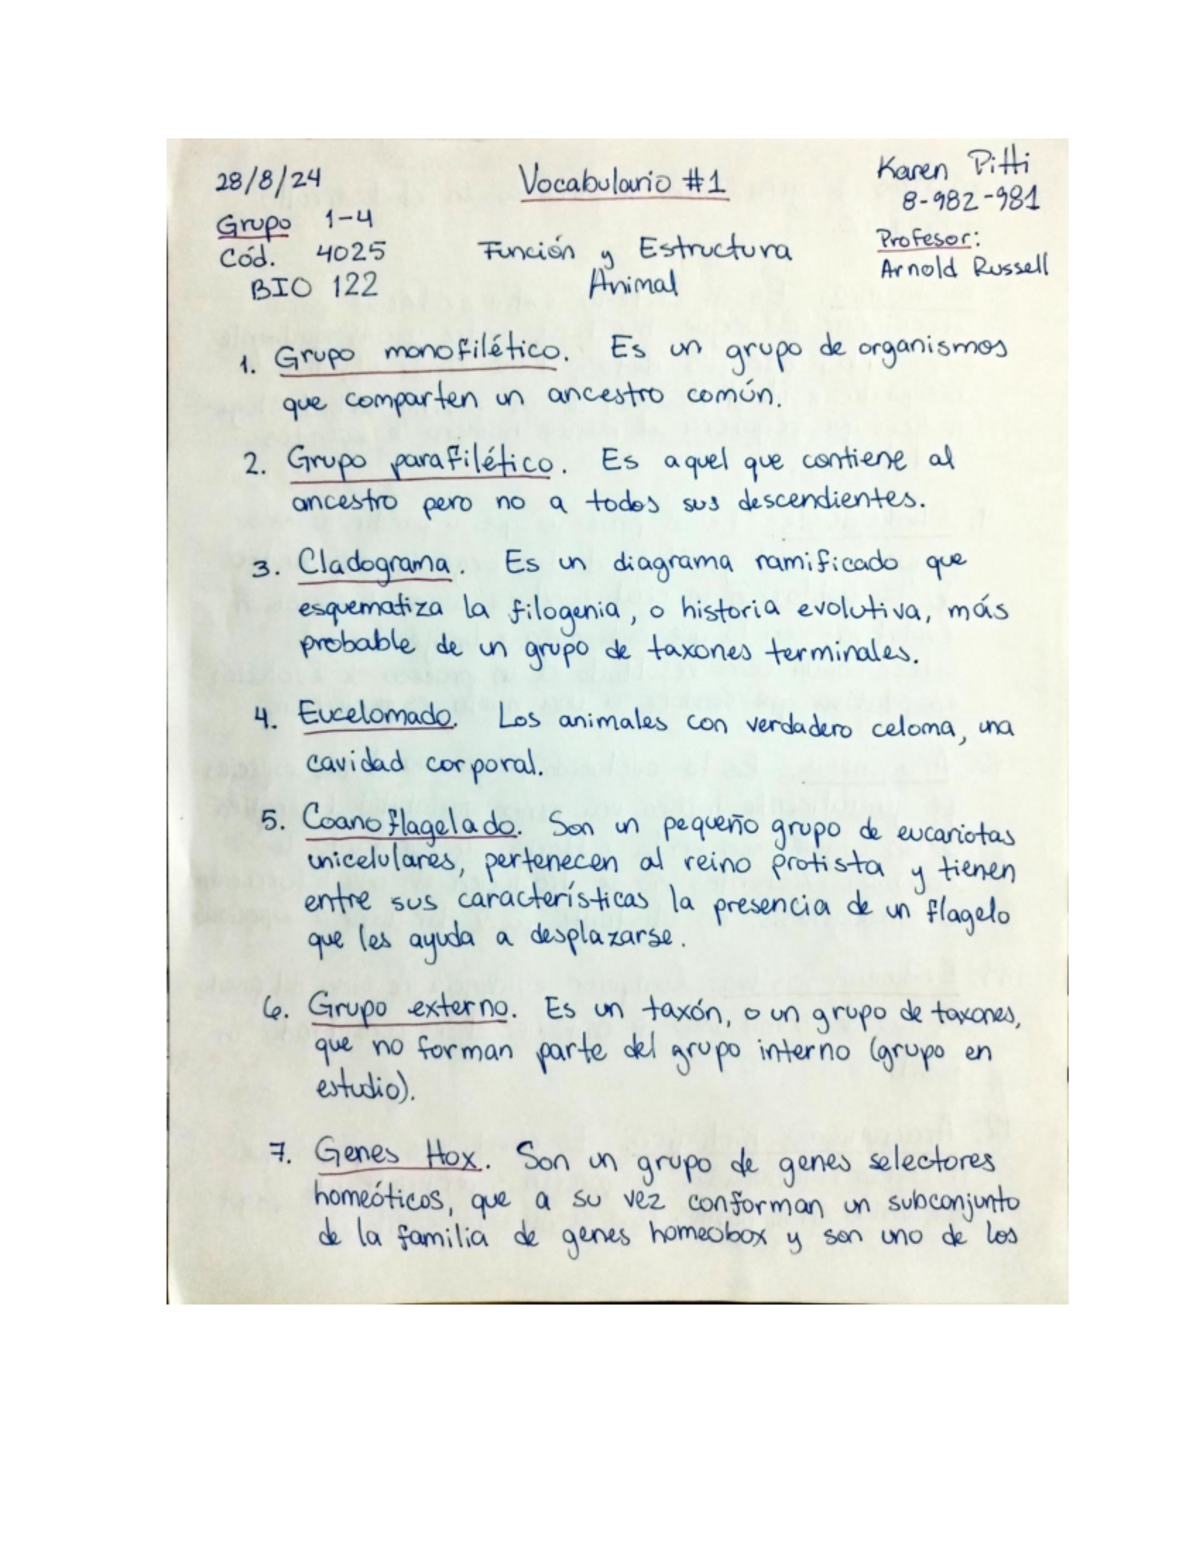 28/8/24
Grupo 1-4
Cód. 4025
BIO 122
Vocabulario #1
Función y Estructura
Animal
Karen Pitti
8-982-981
Profesor:
Arnold Russell
1. Grupo monofilético. Es un grupo de organismos
que comparten un ancestro común.
2. Grupo parafilético. Es aquel que contiene al
ancestro pero no a todos sus descendientes.
3. Cladograma. Es un diagrama ramificado que
esquematiza la filogenia, o historia evolutiva, más
probable de un grupo de taxones terminales.
4. Eucelomado. Los animales con verdadero celoma, una
cavidad corporal.
5. Coanoflagelado. Son un pequeño grupo de eucariotas
unicelulares, pertenecen al reino protista y tienen
entre sus características la presencia de un flagelo
que les ayuda a desplazarse.
6. Grupo externo. Es un taxón, o un grupo de taxones,
que no forman parte del grupo interno (grupo en
estudio).
7. Genes Hox. Son un grupo de genes selectores
homeóticos, que a su vez conforman un subconjunto
de la familia de genes homeobox y son uno de los